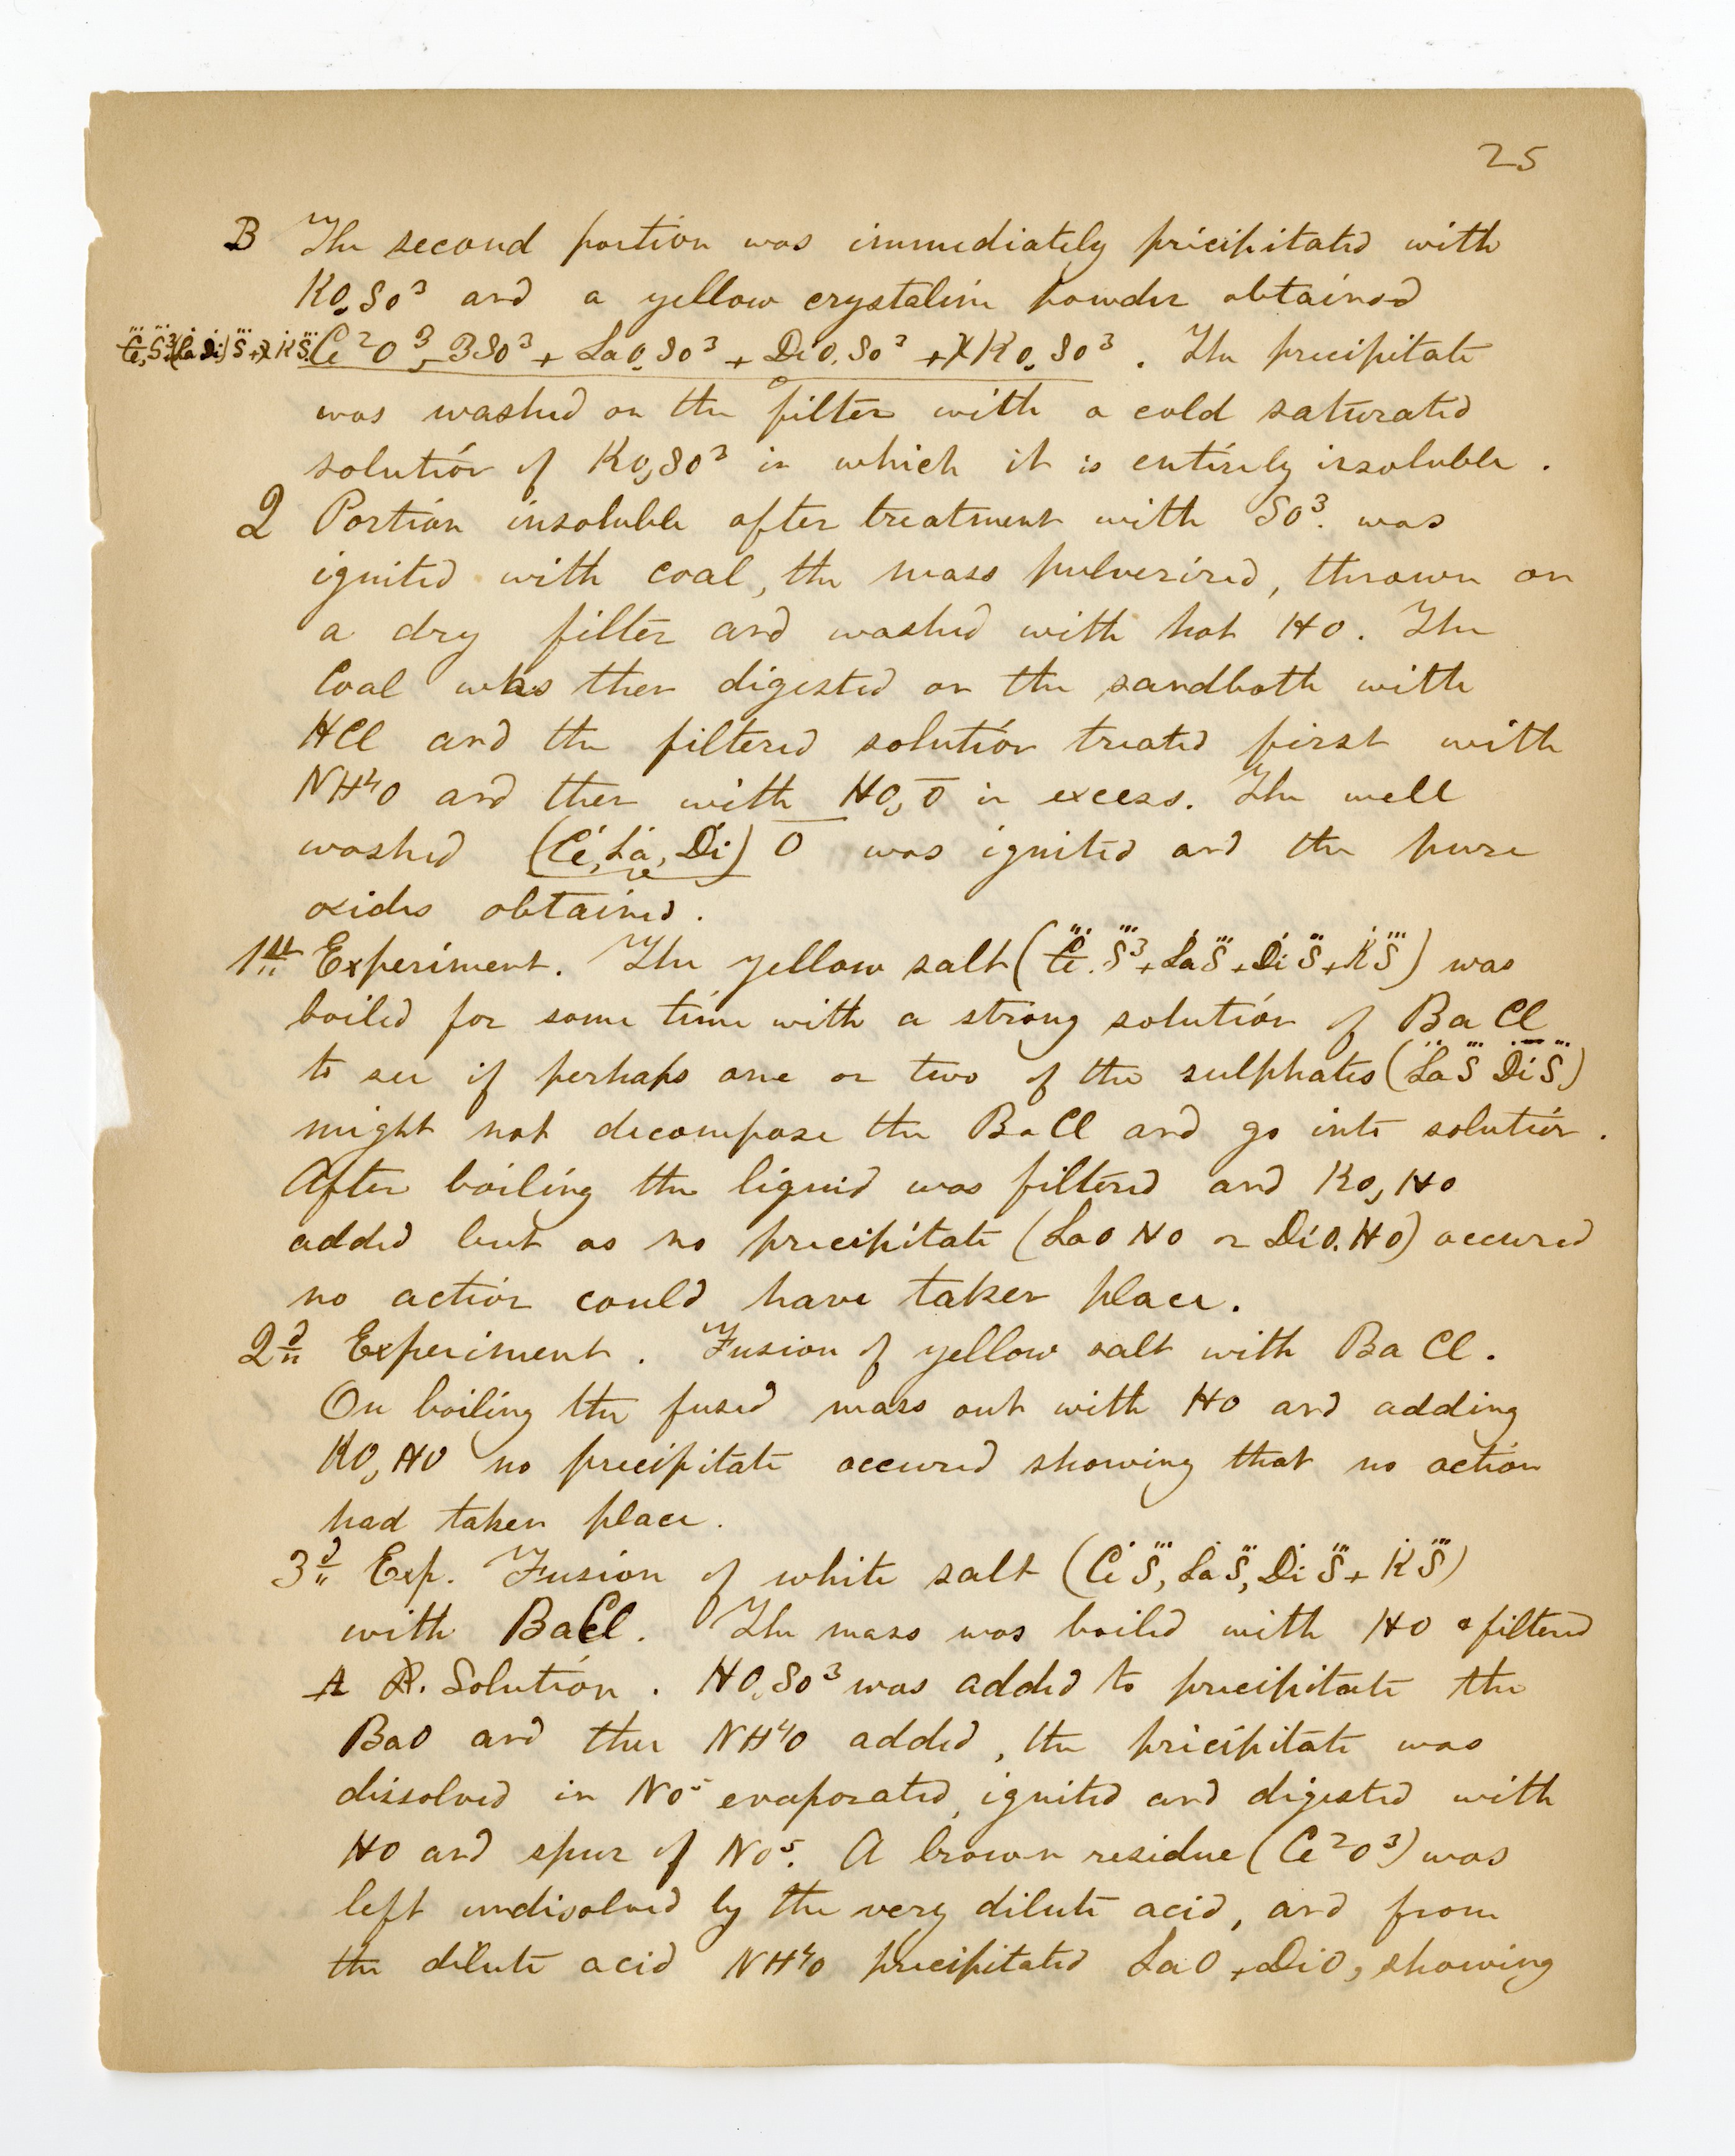 25
B The second portion was immediately pricipitated with
KO,SO³ and a yellow crystaline powder obtained
C̶e,S̈³(La Di)S̈+xKS̈ Ce²O³,3SO³ + LaO,SO³ + DiO.SO³ + XKO,SO³. The precipitate
was washed on the filter with a cold saturated
solution of KO,SO³ in which it is entirely insoluble.
2 Portion insoluble after treatment with SO³. was
ignited with coal, the mass pulverized, thrown on
a dry filter and washed with hot HO. The
Coal was then digested on the sandbath with
HCl and the filtered solution treated first with
NH⁴O and then with HO,O̅ in excess. The well
washed (Ċe, L̇a, Ḋi) O̅ was ignited and the pure
oxides obtained.
1st Experiment. The yellow salt (C̶e⃛.S⃛³+L̇aS⃛+ḊiS⃛+K̇S⃛) was
boiled for some time with a strong solution of Ba Cl
to see if perhaps one or two of the sulphates (L̇aS⃛ ḊiS⃛)
might not decompose the BaCl and go into solution.
After boiling the liquid was filtered and KO,HO
added but as no precipitate (LaO HO or DiO.HO) occured
no action could have taken place.
2d Experiment. Fusion of yellow salt with Ba Cl.
On boiling the fused mass out with HO and adding
KO,HO no precipitate occured showing that no action
had taken place.
3d Exp. Fusion of white salt (ĊeS⃛, L̇aS⃛, ḊiS⃛+K̇S⃛)
with BaCl. The mass was boiled with HO & filtered
A Solution. HO,SO³ was added to precipitate the
BaO and then NH⁴O added, the pricipitate was
dissolved in NO⁵ evaporated, ignited and digested with
HO and spur of NO⁵. A brown residue (Ce²O³) was
left undisolved by the very dilute acid, and from
the dilute acid NH⁴O precipitated LaO + DiO, showing